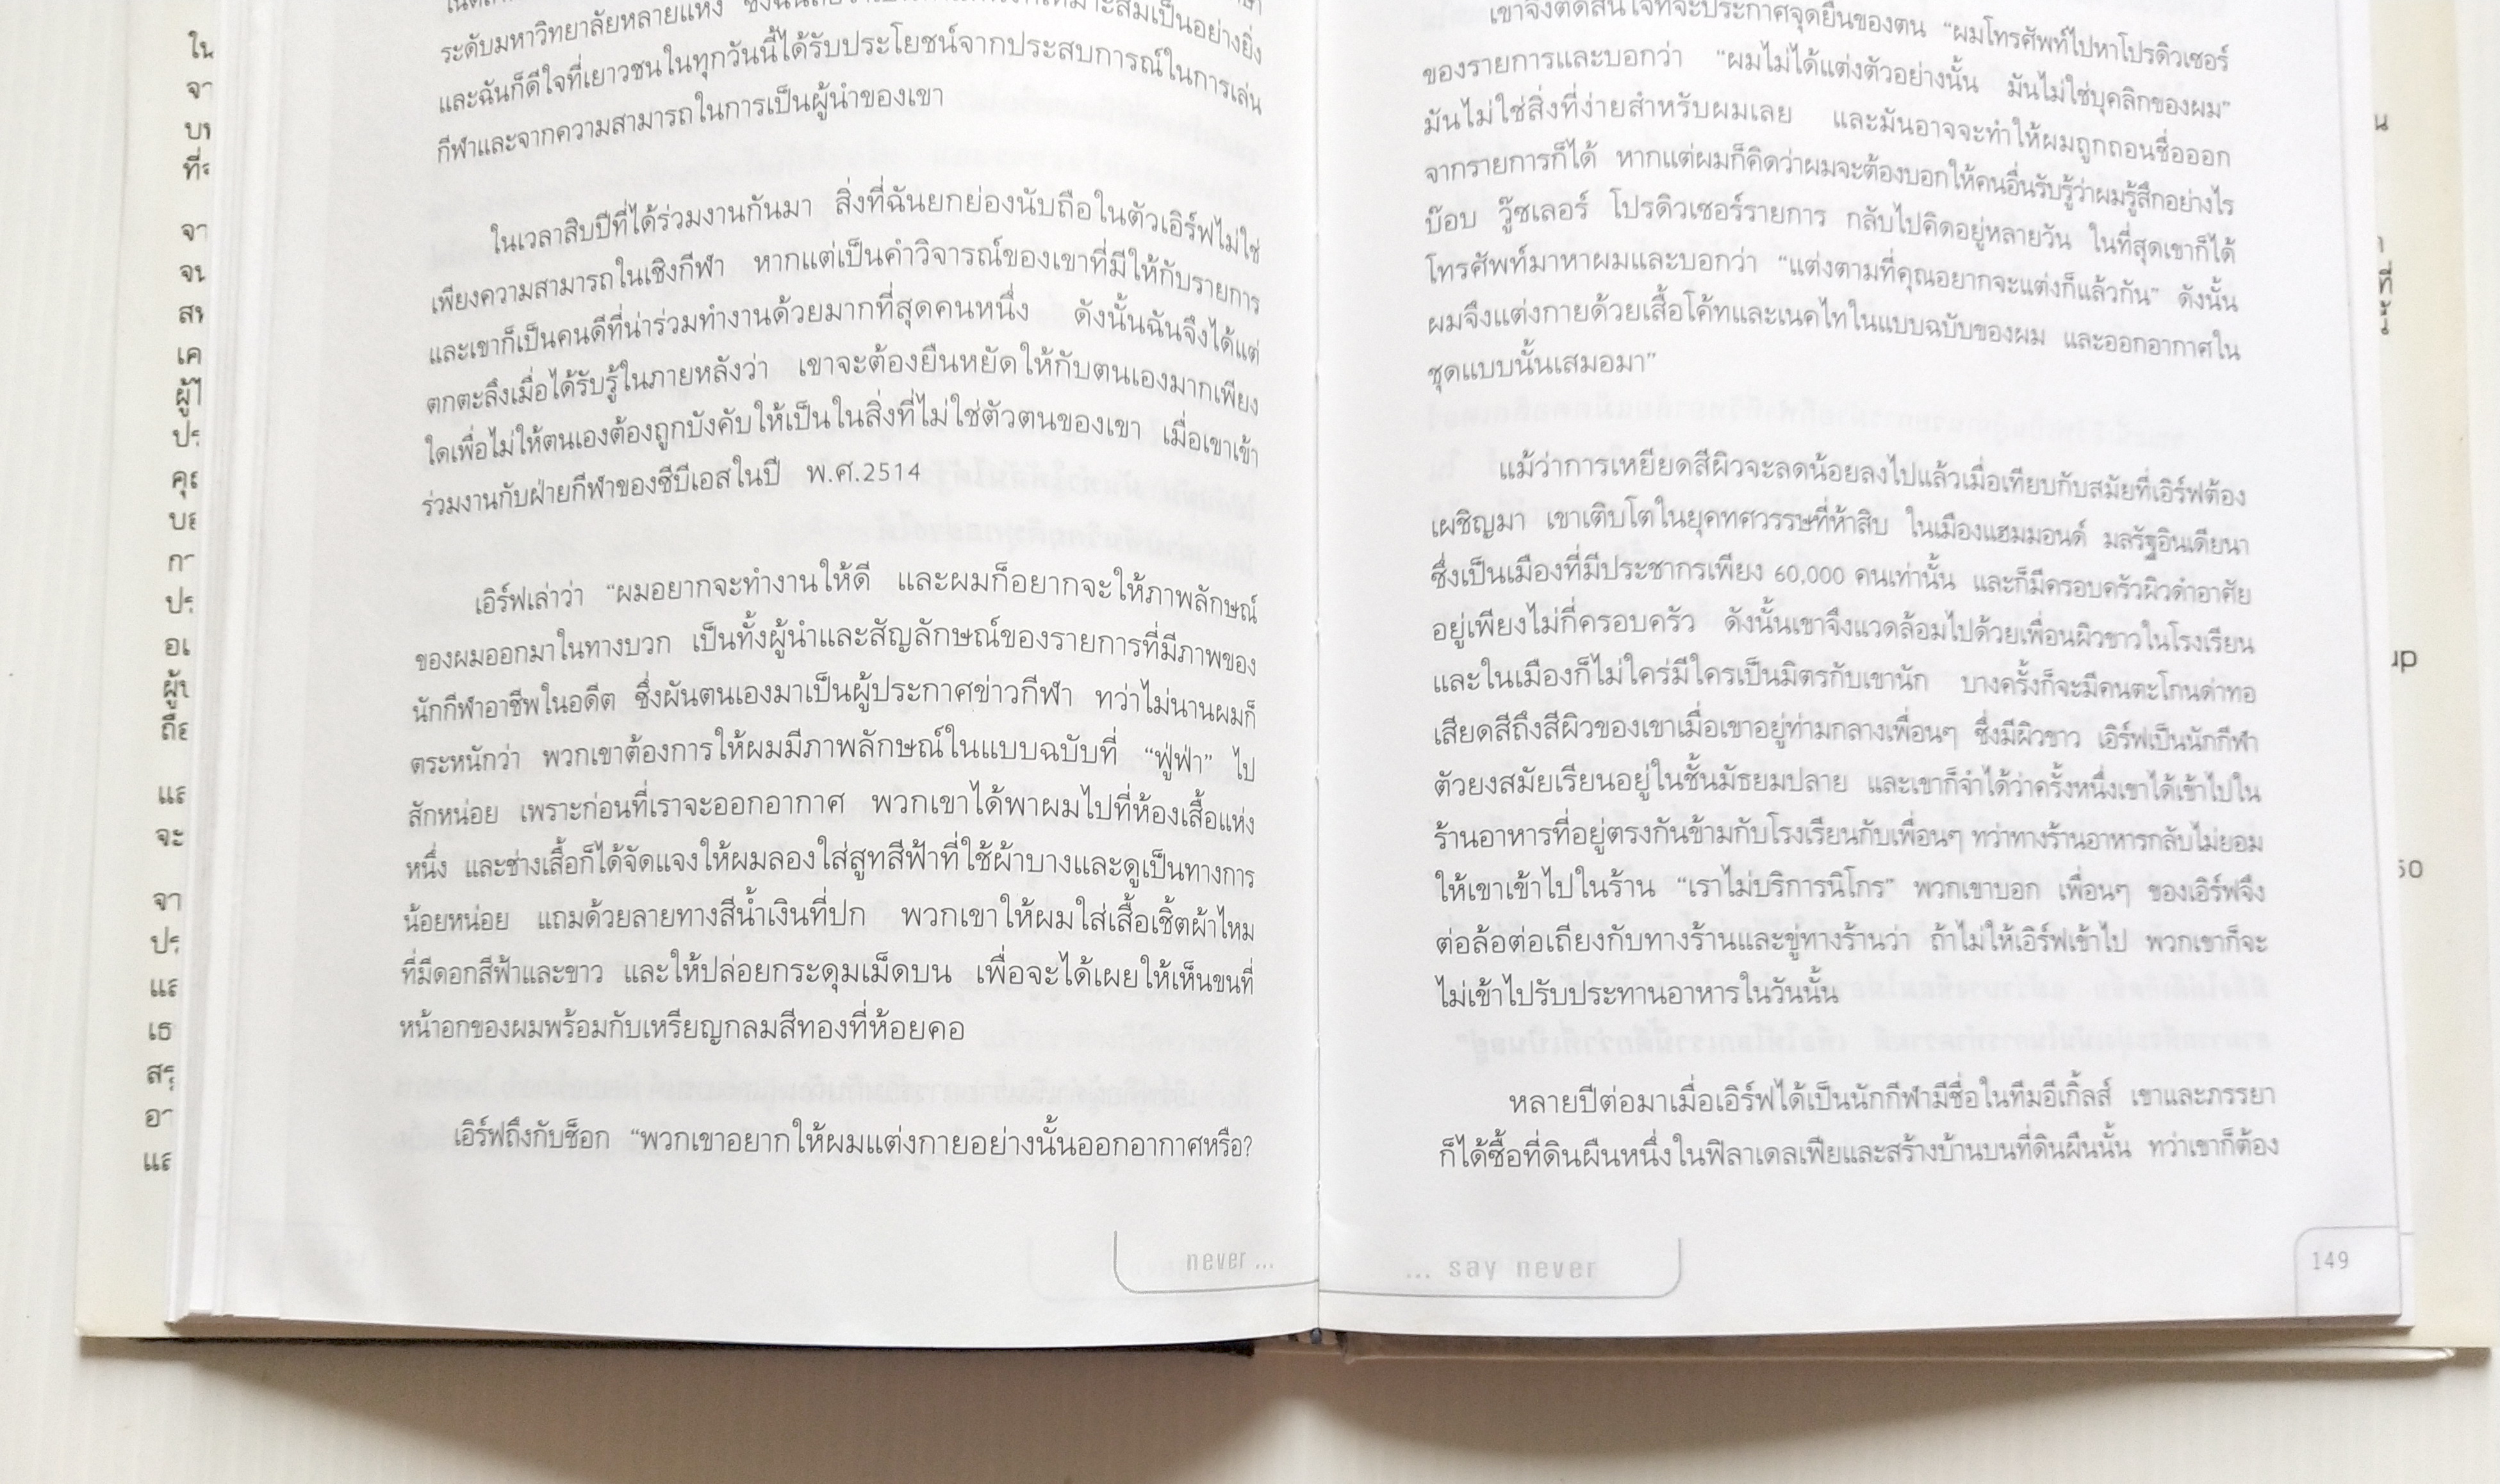 ระดับมหาวิทยาลัยหลายแห่ง เหมาะสมเป็นอย่างยิ่ง
และฉันก็ดีใจที่เยาวชนในทุกวันนี้ได้รับประโยชน์จากประสบการณ์ในการเล่น
กีฬาและจากความสามารถในการเป็นผู้นำของเขา
ในเวลาสิบปีที่ได้ร่วมงานกันมา สิ่งที่ฉันยกย่องนับถือในตัวเอิร์ฟไม่ใช่
เพียงความสามารถในเชิงกีฬา หากแต่เป็นคำวิจารณ์ของเขาที่มีให้กับรายการ
และเขาก็เป็นคนดีที่น่าร่วมทำงานด้วยมากที่สุดคนหนึ่ง ดังนั้นฉันจึงได้แต่
ตกตะลึงเมื่อได้รับรู้ในภายหลังว่า เขาจะต้องยืนหยัดให้กับตนเองมากเพียง
ใดเพื่อไม่ให้ตนเองต้องถูกบังคับให้เป็นในสิ่งที่ไม่ใช่ตัวตนของเขา เมื่อเขาเข้า
ร่วมงานกับฝ่ายกีฬาของซีบีเอสในปี พ.ศ.2514
เอิร์ฟเล่าว่า “ผมอยากจะทำงานให้ดี และผมก็อยากจะให้ภาพลักษณ์
ของผมออกมาในทางบวก เป็นทั้งผู้นำและสัญลักษณ์ของรายการที่มีภาพของ
นักกีฬาอาชีพในอดีต ซึ่งผันตนเองมาเป็นผู้ประกาศข่าวกีฬา ทว่าไม่นานผมก็
ตระหนักว่า พวกเขาต้องการให้ผมมีภาพลักษณ์ในแบบฉบับที่ “ฟู่ฟ่า” ไป
สักหน่อย เพราะก่อนที่เราจะออกอากาศ พวกเขาได้พาผมไปที่ห้องเสื้อแห่ง
หนึ่ง และช่างเสื้อก็ได้จัดแจงให้ผมลองใส่สูทสีฟ้าที่ใช้ผ้าบางและดูเป็นทางการ
น้อยหน่อย แถมด้วยลายทางสีน้ำเงินที่ปก พวกเขาให้ผมใส่เสื้อเชิ้ตผ้าไหม
ที่มีดอกสีฟ้าและขาว และให้ปล่อยกระดุมเม็ดบน เพื่อจะได้เผยให้เห็นขนที่
หน้าอกของผมพร้อมกับเหรียญกลมสีทองที่ห้อยคอ
เอิร์ฟถึงกับช็อก “พวกเขาอยากให้ผมแต่งกายอย่างนั้นออกอากาศหรือ?
never ...
เขาจึงตัดสินใจที่จะประกาศจุดยืนของตน “ผมโทรศัพท์ไปหาโปรดิวเซอร์
ของรายการและบอกว่า “ผมไม่ได้แต่งตัวอย่างนั้น มันไม่ใช่บุคลิกของผม”
มันไม่ใช่สิ่งที่ง่ายสำหรับผมเลย และมันอาจจะทำให้ผมถูกถอนชื่อออก
จากรายการก็ได้ หากแต่ผมก็คิดว่าผมจะต้องบอกให้คนอื่นรับรู้ว่าผมรู้สึกอย่างไร
บ๊อบ วู๊ซเลอร์ โปรดิวเซอร์รายการ กลับไปคิดอยู่หลายวัน ในที่สุดเขาก็ได้
โทรศัพท์มาหาผมและบอกว่า “แต่งตามที่คุณอยากจะแต่งก็แล้วกัน” ดังนั้น
ผมจึงแต่งกายด้วยเสื้อโค้ทและเนคไทในแบบฉบับของผม และออกอากาศใน
ชุดแบบนั้นเสมอมา”
แม้ว่าการเหยียดสีผิวจะลดน้อยลงไปแล้วเมื่อเทียบกับสมัยที่เอิร์ฟต้อง
เผชิญมา เขาเติบโตในยุคทศวรรษที่ห้าสิบ ในเมืองแฮมมอนด์ มลรัฐอินเดียนา
ซึ่งเป็นเมืองที่มีประชากรเพียง 60,000 คนเท่านั้น และก็มีครอบครัวผิวดำอาศัย
อยู่เพียงไม่กี่ครอบครัว ดังนั้นเขาจึงแวดล้อมไปด้วยเพื่อนผิวขาวในโรงเรียน
และในเมืองก็ไม่ใคร่มีใครเป็นมิตรกับเขานัก บางครั้งก็จะมีคนตะโกนด่าทอ
เสียดสีถึงสีผิวของเขาเมื่อเขาอยู่ท่ามกลางเพื่อนๆ ซึ่งมีผิวขาว เอิร์ฟเป็นนักกีฬา
ตัวยงสมัยเรียนอยู่ในชั้นมัธยมปลาย และเขาก็จำได้ว่าครั้งหนึ่งเขาได้เข้าไปใน
ร้านอาหารที่อยู่ตรงกันข้ามกับโรงเรียนกับเพื่อนๆ ทว่าทางร้านอาหารกลับไม่ยอม
ให้เขาเข้าไปในร้าน “เราไม่บริการนิโกร” พวกเขาบอก เพื่อนๆ ของเอิร์ฟจึง
ต่อล้อต่อเถียงกับทางร้านและขู่ทางร้านว่า ถ้าไม่ให้เอิร์ฟเข้าไป พวกเขาก็จะ
ไม่เข้าไปรับประทานอาหารในวันนั้น
หลายปีต่อมาเมื่อเอิร์ฟได้เป็นนักกีฬามีชื่อในทีมอีเกิ้ลส์ เขาและภรรยา
ก็ได้ซื้อที่ดินผืนหนึ่งในฟิลาเดลเฟียและสร้างบ้านบนที่ดินผืนนั้น ทว่าเขาก็ต้อง
... say never
149